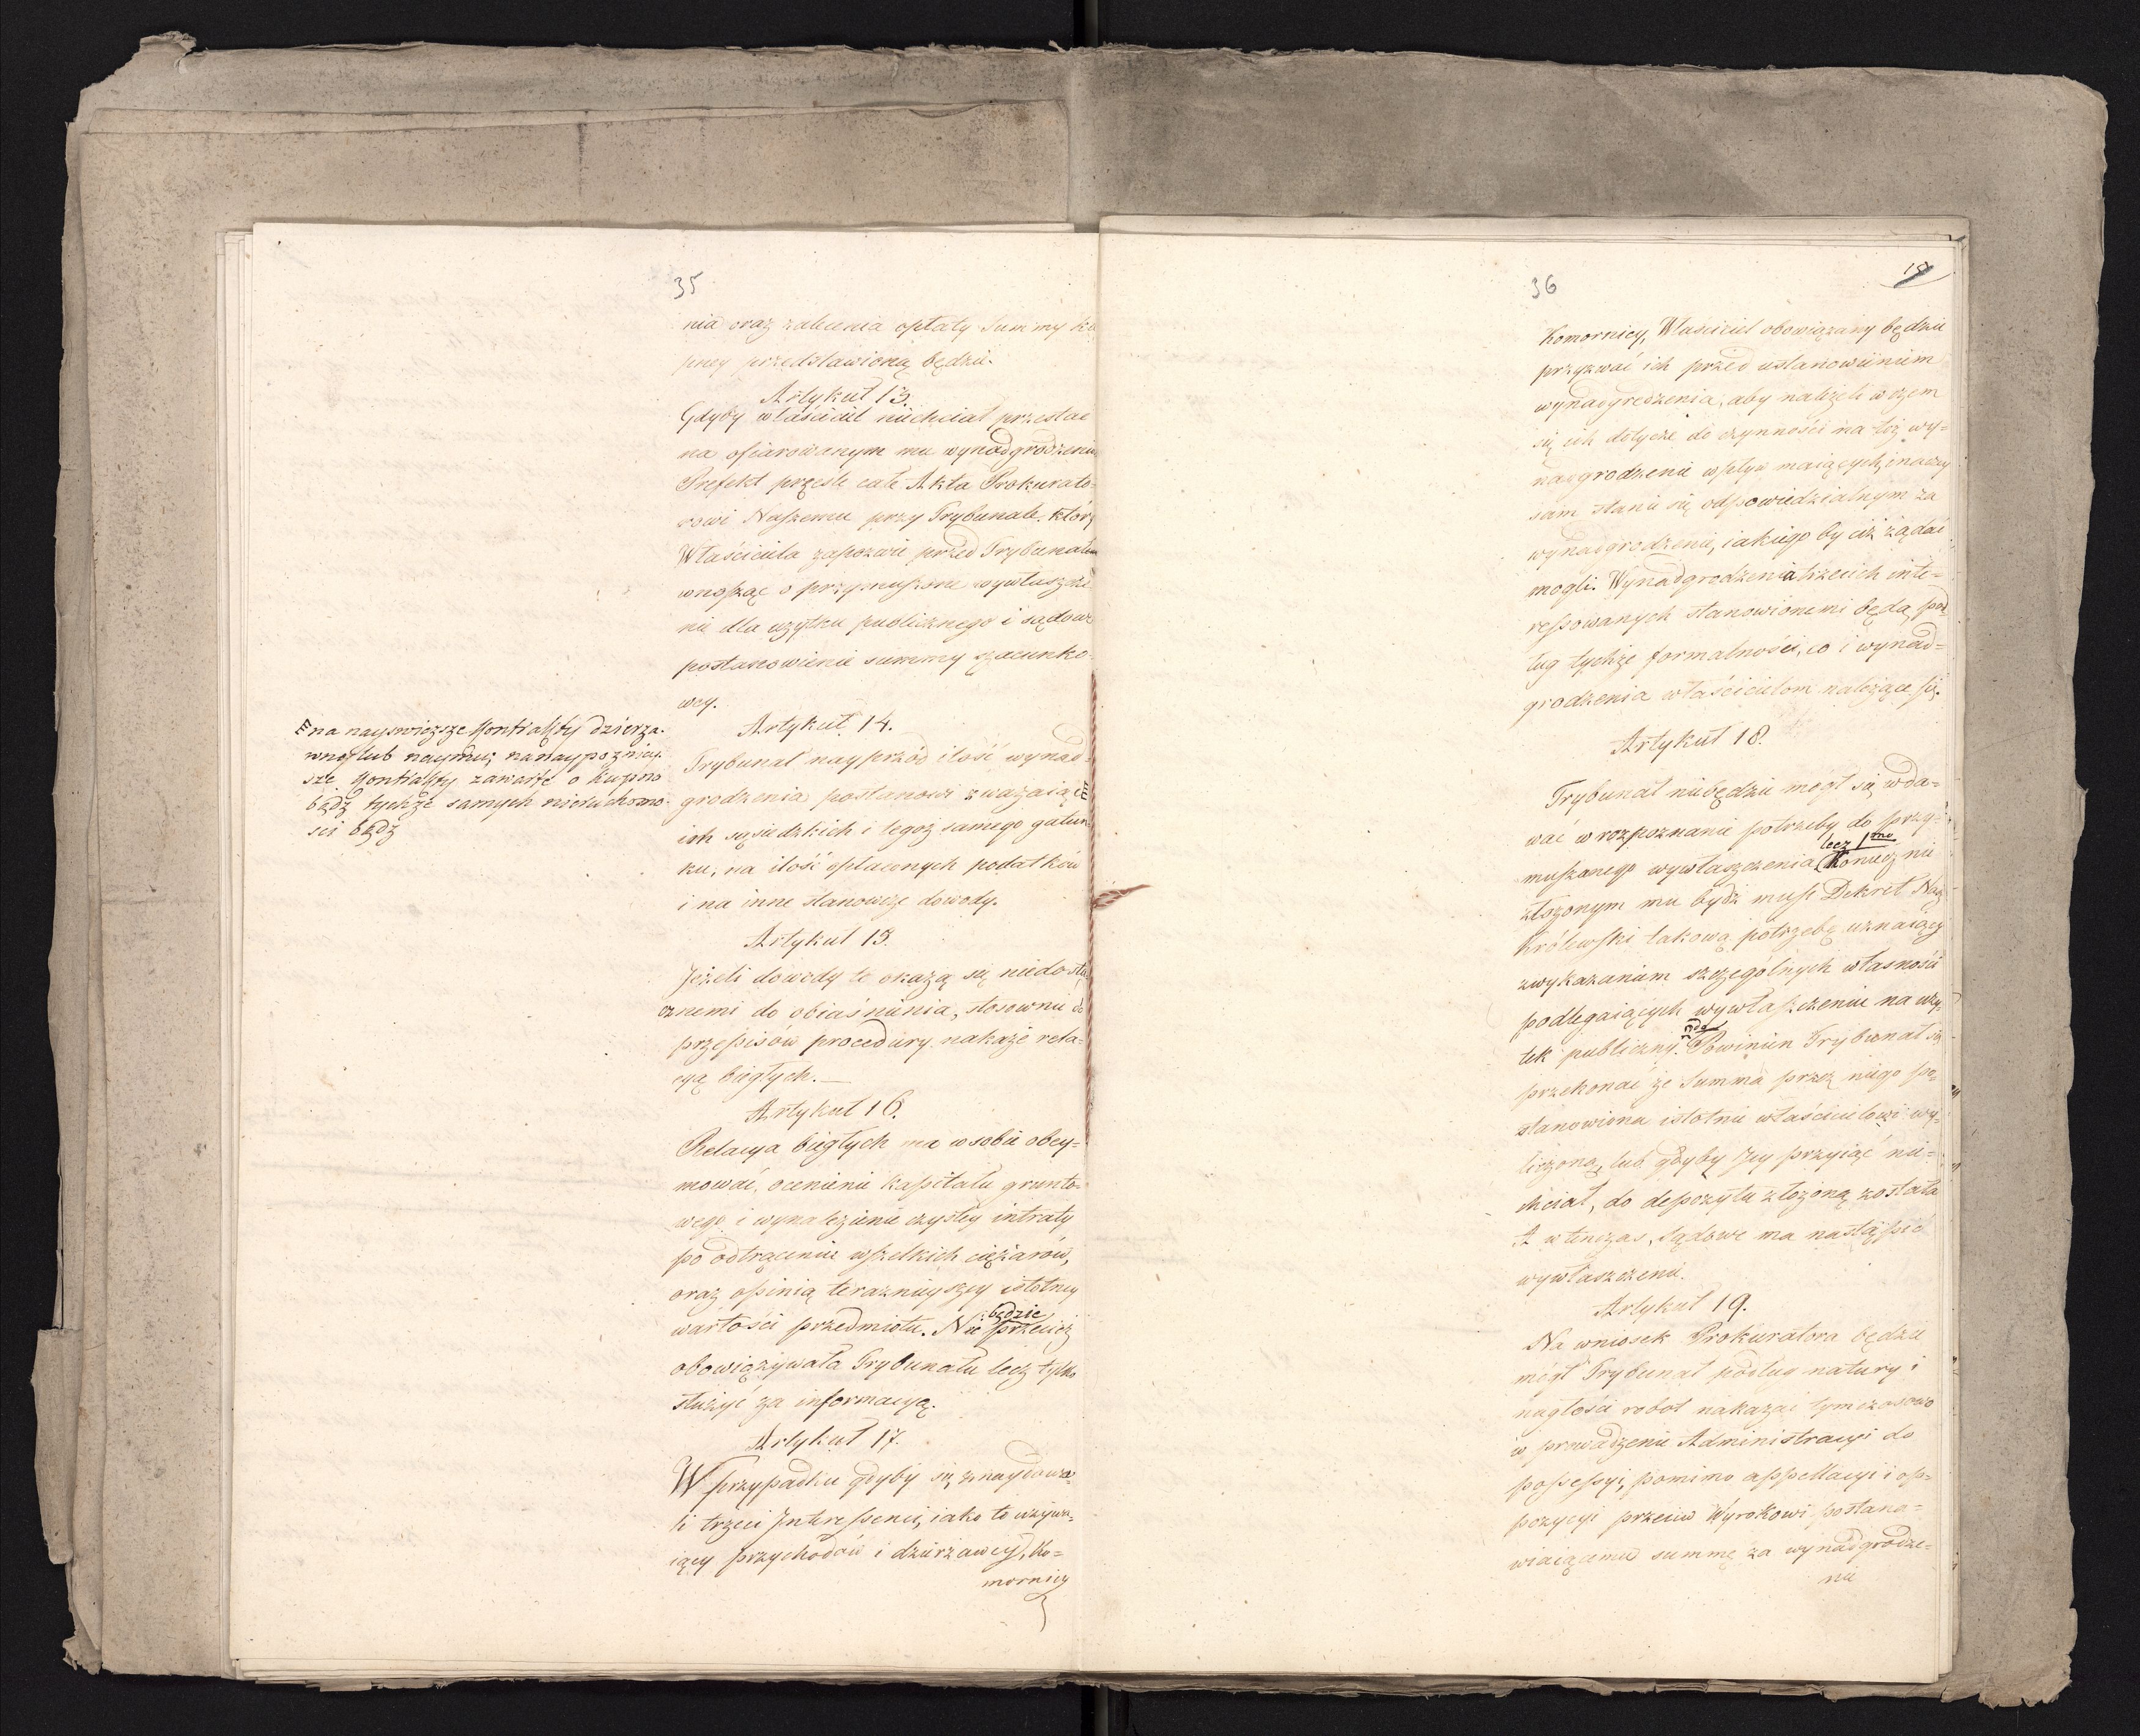 35
nia oraz zalecenia opłaty Summy ku
pney przedstawioną będzie.
Artykuł 13.
Gdyby właściciel niechciał przestać
na ofiarowanym mu wynadgrodzeniu
Prefekt prześle całe Akta Prokurato-
rowi Naszemu przy Trybunale, który
Właściciela zapozwie przed Trybunałem
wnosząc o przymuszone wywłaszcze
nie dla użytku publicznego i sądowe
postanowienie summy szacunko-
wey.
Artykuł 14.
Trybunał nayprzód ilość wynad-
grodzenia postanowi zważaiąc
na nayswieższe Kontrakty dzierża-
wney lub naymu; na naypoźniey-
sze Kontrakty zawarte o kupno
bądź tychże samych nieruchomo-
sci bądz
ich sąsiedzkich i tegoż samego gatun
ku, na ilość opłaconych podatków
i na inne stanowcze dowody.
Artykuł 15.
Jeżeli dowody te okażą się niedosta
cznemi do obiaśnienia, stosownie do
przepisów procedury nakaże rela-
cyą biegłych.
Artykuł 16.
Relacya biegłych ma w sobie obey-
mować, ocenienie kapitału grunto-
wego i wynalezienie czystey intraty
po odtrąceniu wszelkich ciężarów,
oraz opinią teraźnieyszey istotney
wartości przedmiotu. Nie będzie przecież
obowiązywała Trybunału lecz tylko
służyć za informacyą.
Artykuł 17.
W przypadku gdyby się znaydowa-
li trzeci Interessenci, iako to używa-
iący przychodów i dzierżawcy, Ko-
mornicy
36
18
Komornicy, Właściciel obowiązany będzie
przyzwać ich przed ustanowieniem
wynadgrodzenia, aby należeli w czem
się ich dotycze do czynności na też wy-
nadgrodzenie wpływ maiących, inaczey
sam stanie się odpowiedzialnym za
wynadgrodzenie, iakiego by ciż żądać
mogli. Wynadgrodzenia trzecich inte-
ressowanych stanowionemi będą pod
ług tychże formalności, co i wynad-
grodzenia właścicielom należące się.
Artykuł 18.
Trybunał niebędzie mógł się wda-
wać w rozpoznanie potrzeby do przy-
muszanego wywłaszczenia lecz 1mo Koniecznie
złożonym mu bydź musi Dekret Nasz
Królewski takową potrzebę uznaiący
z wykazaniem szczególnych własności
podlegaiących wywłaszczeniu na uży-
tek publiczny. 2do Powinien Trybunał się
przekonać że Summa przez niego po-
stanowiona istotnie właścicielowi wy-
liczoną, lub gdyby Jey przyiąć nie-
chciał, do depozytu złożoną została
A wtenczas, sądowe ma nastąpić
wywłaszczenie.
Artykuł 19.
Na wniosek Prokuratora będzie
mógł Trybunał podług natury i
nagłości robot nakazać tymczasowo
wprowadzenie Administracyi do
possessyi, pomimo appellacyi i op-
pozycyi przeciw Wyrokowi postana-
wiaiącemu summę za wynadgrodze-
nie